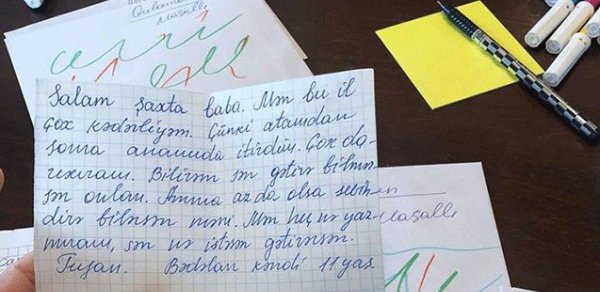 Masallı
Salam şaxta baba. Mən bu il
çox kədərliyəm. Çünki atamdan
sonra anamıda itirdim. Çox da-
rıxıram. Bilirəm sən gətirə bilmir-
sən onları. Amma az da olsa sevin-
dirə bilərsən məni. Mən heç nə yaz-
mıram, sən nə istəsən gətirərsən.
Tuşan. Bədəlan kəndi 11 yaş.
Masallı